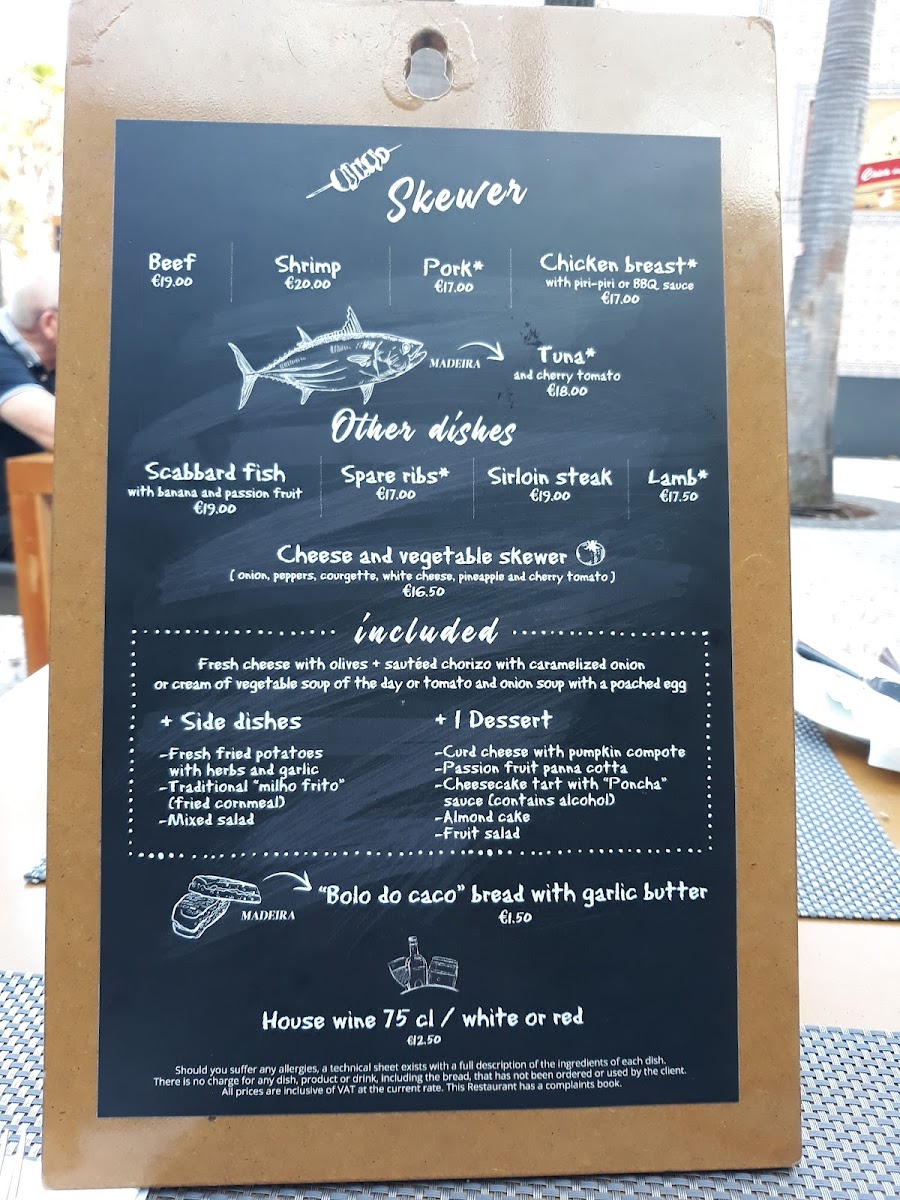 Skewer
Beef
€19.00
Shrimp
€20.00
Pork*
€17.00
Chicken breast*
with piri-piri or BBQ sauce
€17.00
MADEIRA
Tuna*
and cherry tomato
€18.00
Other dishes
Scabbard fish
with banana and passion fruit
€19.00
Spare ribs*
€17.00
Sirloin steak
€19.00
Lamb*
€17.50
Cheese and vegetable skewer
( onion, peppers, courgette, white cheese, pineapple and cherry tomato )
€16.50
included
Fresh cheese with olives + sautéed chorizo with caramelized onion
or cream of vegetable soup of the day or tomato and onion soup with a poached egg
+ Side dishes
-Fresh fried potatoes
with herbs and garlic
-Traditional "milho frito"
(fried cornmeal)
-Mixed salad
+ 1 Dessert
-Curd cheese with pumpkin compote
-Passion fruit panna cotta
-Cheesecake tart with "Poncha"
sauce (contains alcohol)
-Almond cake
-Fruit salad
MADEIRA
"Bolo do caco" bread with garlic butter
€1.50
House wine 75 cl / white or red
€12.50
Should you suffer any allergies, a technical sheet exists with a full description of the ingredients of each dish.
There is no charge for any dish, product or drink, including the bread, that has not been ordered or used by the client.
All prices are inclusive of VAT at the current rate. This Restaurant has a complaints book.